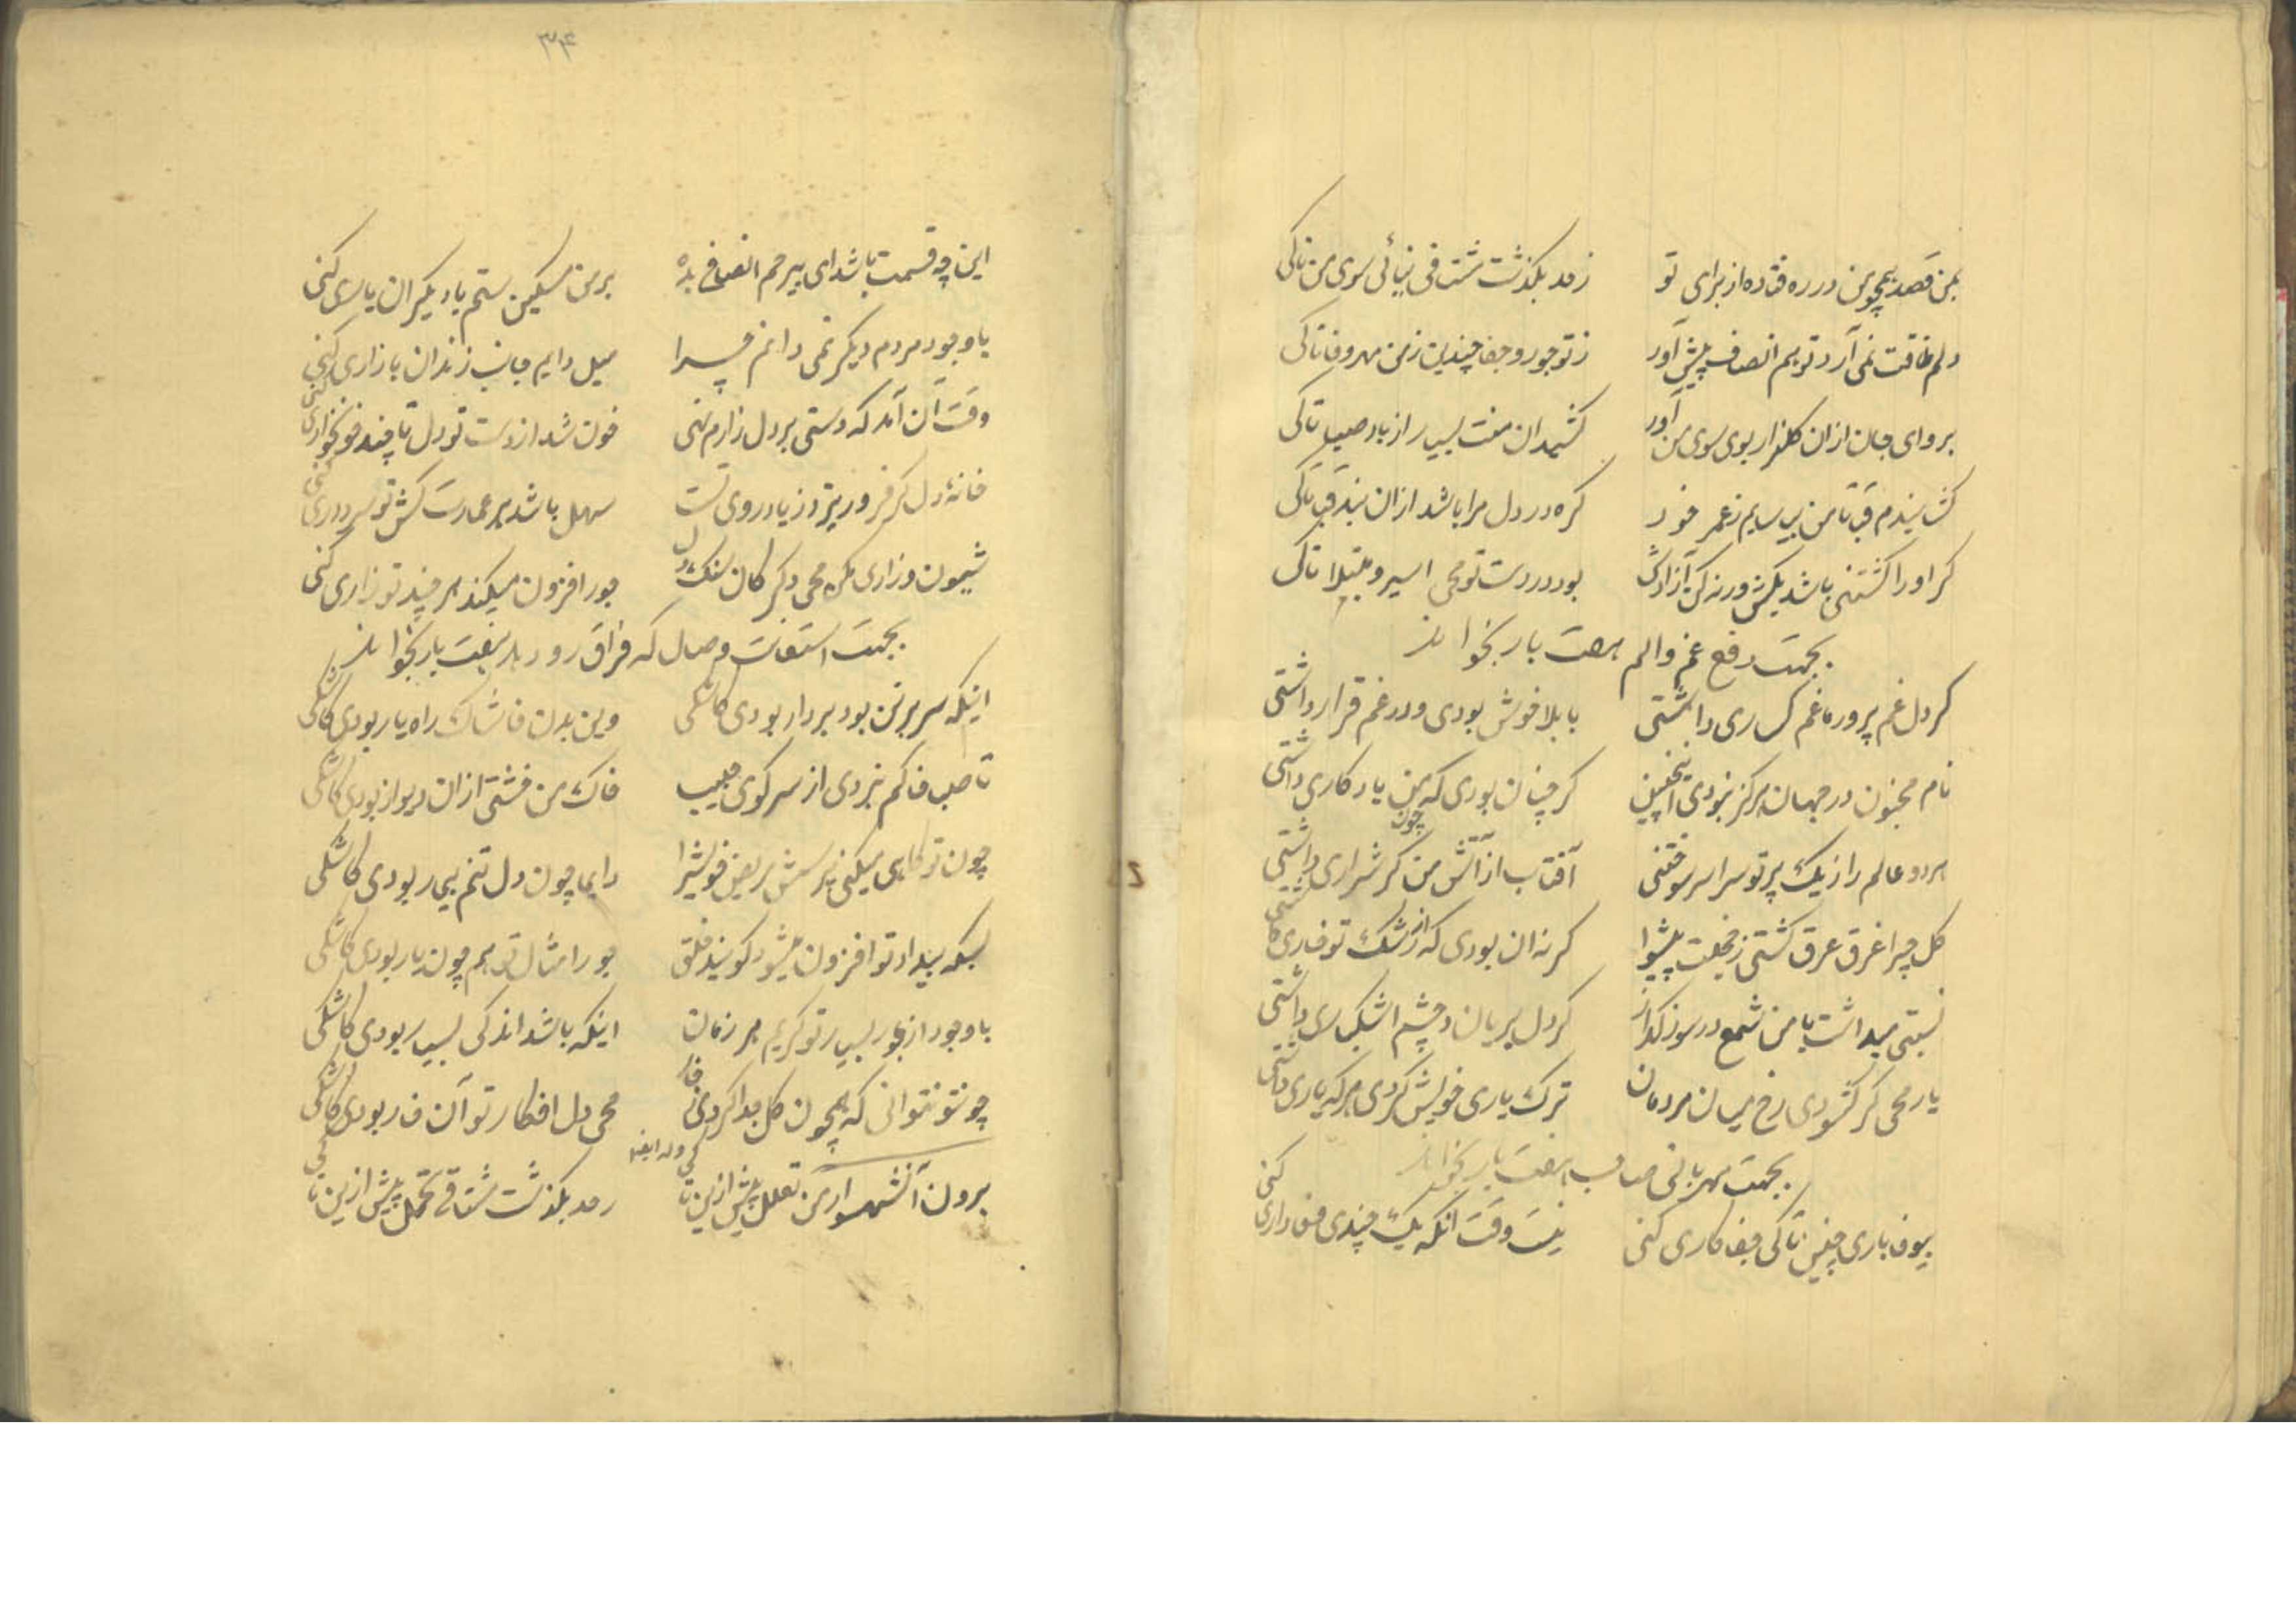 بمن قصد همچو من در ره فتاده از برای تو زحد بگذشت مشتاقی نیائی سوی من تاکی
دلم طاقت نمی آرد تو هم انصاف پیش آور ز تو جور و جفا چندین ز من مهر و وفا تاکی
برو ای جان از ان کلزار بوی سوی من آور کشیدن منت بسیار از باد صبا تاکی
قبا تا من بر سایم ز عمر خود کره در دل مرا باشد از ان بند قبا تاکی
کر او را کشتنی باشد بکش ورنه کن آزادش بود در دست تو محی اسیر و مبتلا تاکی
بجهت دفع غم و الم هفت بار بخواند
کر دل غم پرور ما غم کساری داشتی با بلا خوش بودی و در غم قرار داشتی
نام مجنون در جهان هرکز نبودی اینچنین کر چنان بودی که چون من یادکاری داشتی
هر دو عالم را ز یک پرتو سراسر سوختی آفتاب از آتش من کر شراری داشتی
کل چرا غرق عرق کشتی ز خجلت پیش وا کر نه ان بودی که از رشک تو خاری داشتی
نسبتی میداشت با من شمع در سوز و کداز کر دل بریان و چشم اشکباری داشتی
یار محی کر کشودی رخ میان مردمان ترک یاری خویش کردی هر که یاری داشتی
بجهت مهربانی صاحب هفت بار بخواند
بیوفا یاری چنین تاکی جفا کاری کنی نیست وقت انکه یک چندی وفاداری کنی
۳۴
این چه قسمت باشد ای بیرحم انصافی بده بر من مسکین ستم با دیکران یاری کنی
با وجود مردم دیکر نمی دانم چرا میل دایم جانب رندان بازاری کنی
وقت آن آمد که دستی بر دل زارم نهی خون شد از دست تو دل تا چند خونخواری کنی
خانهٔ دل کر فرو ریزد ز یاد روی تست سهل باشد بر عمارت کش تو سرداری کنی
شیون و زاری مکن محی دکر کان سنک دل جور افزون میکند هر چند تو زاری کنی
بجهت استعانت وصال که فراق رو دهد هفت بار بخواند
اینکه سر بر تن بود بر دار بودی کاشکی وین بدن خاشاک راه یار بودی کاشکی
تا صبا خاکم نبردی از سر کوی حبیب خاک من خشتی از ان دیوار بودی کاشکی
چون تو کاهی میکنی پرسش مریض خویش را دایما چون دل تنم بیمار بودی کاشکی
بسکه بیداد تو افزون میشود کویند خلق جور امثال تو هم چون یار بودی کاشکی
با وجود از جور بسیار تو کریم هر زمان اینکه باشد اندکی بسیار بودی کاشکی
چونتو نتوانی که همچون کل جدا کردی ز خار محی دل افکار تو آن خار بودی کاشکی
وله ایضا
برون آ شهسوار من تعلل پیش ازین تاکی زحد بگذشت مشتاقی تحمل پیش ازین تاکی